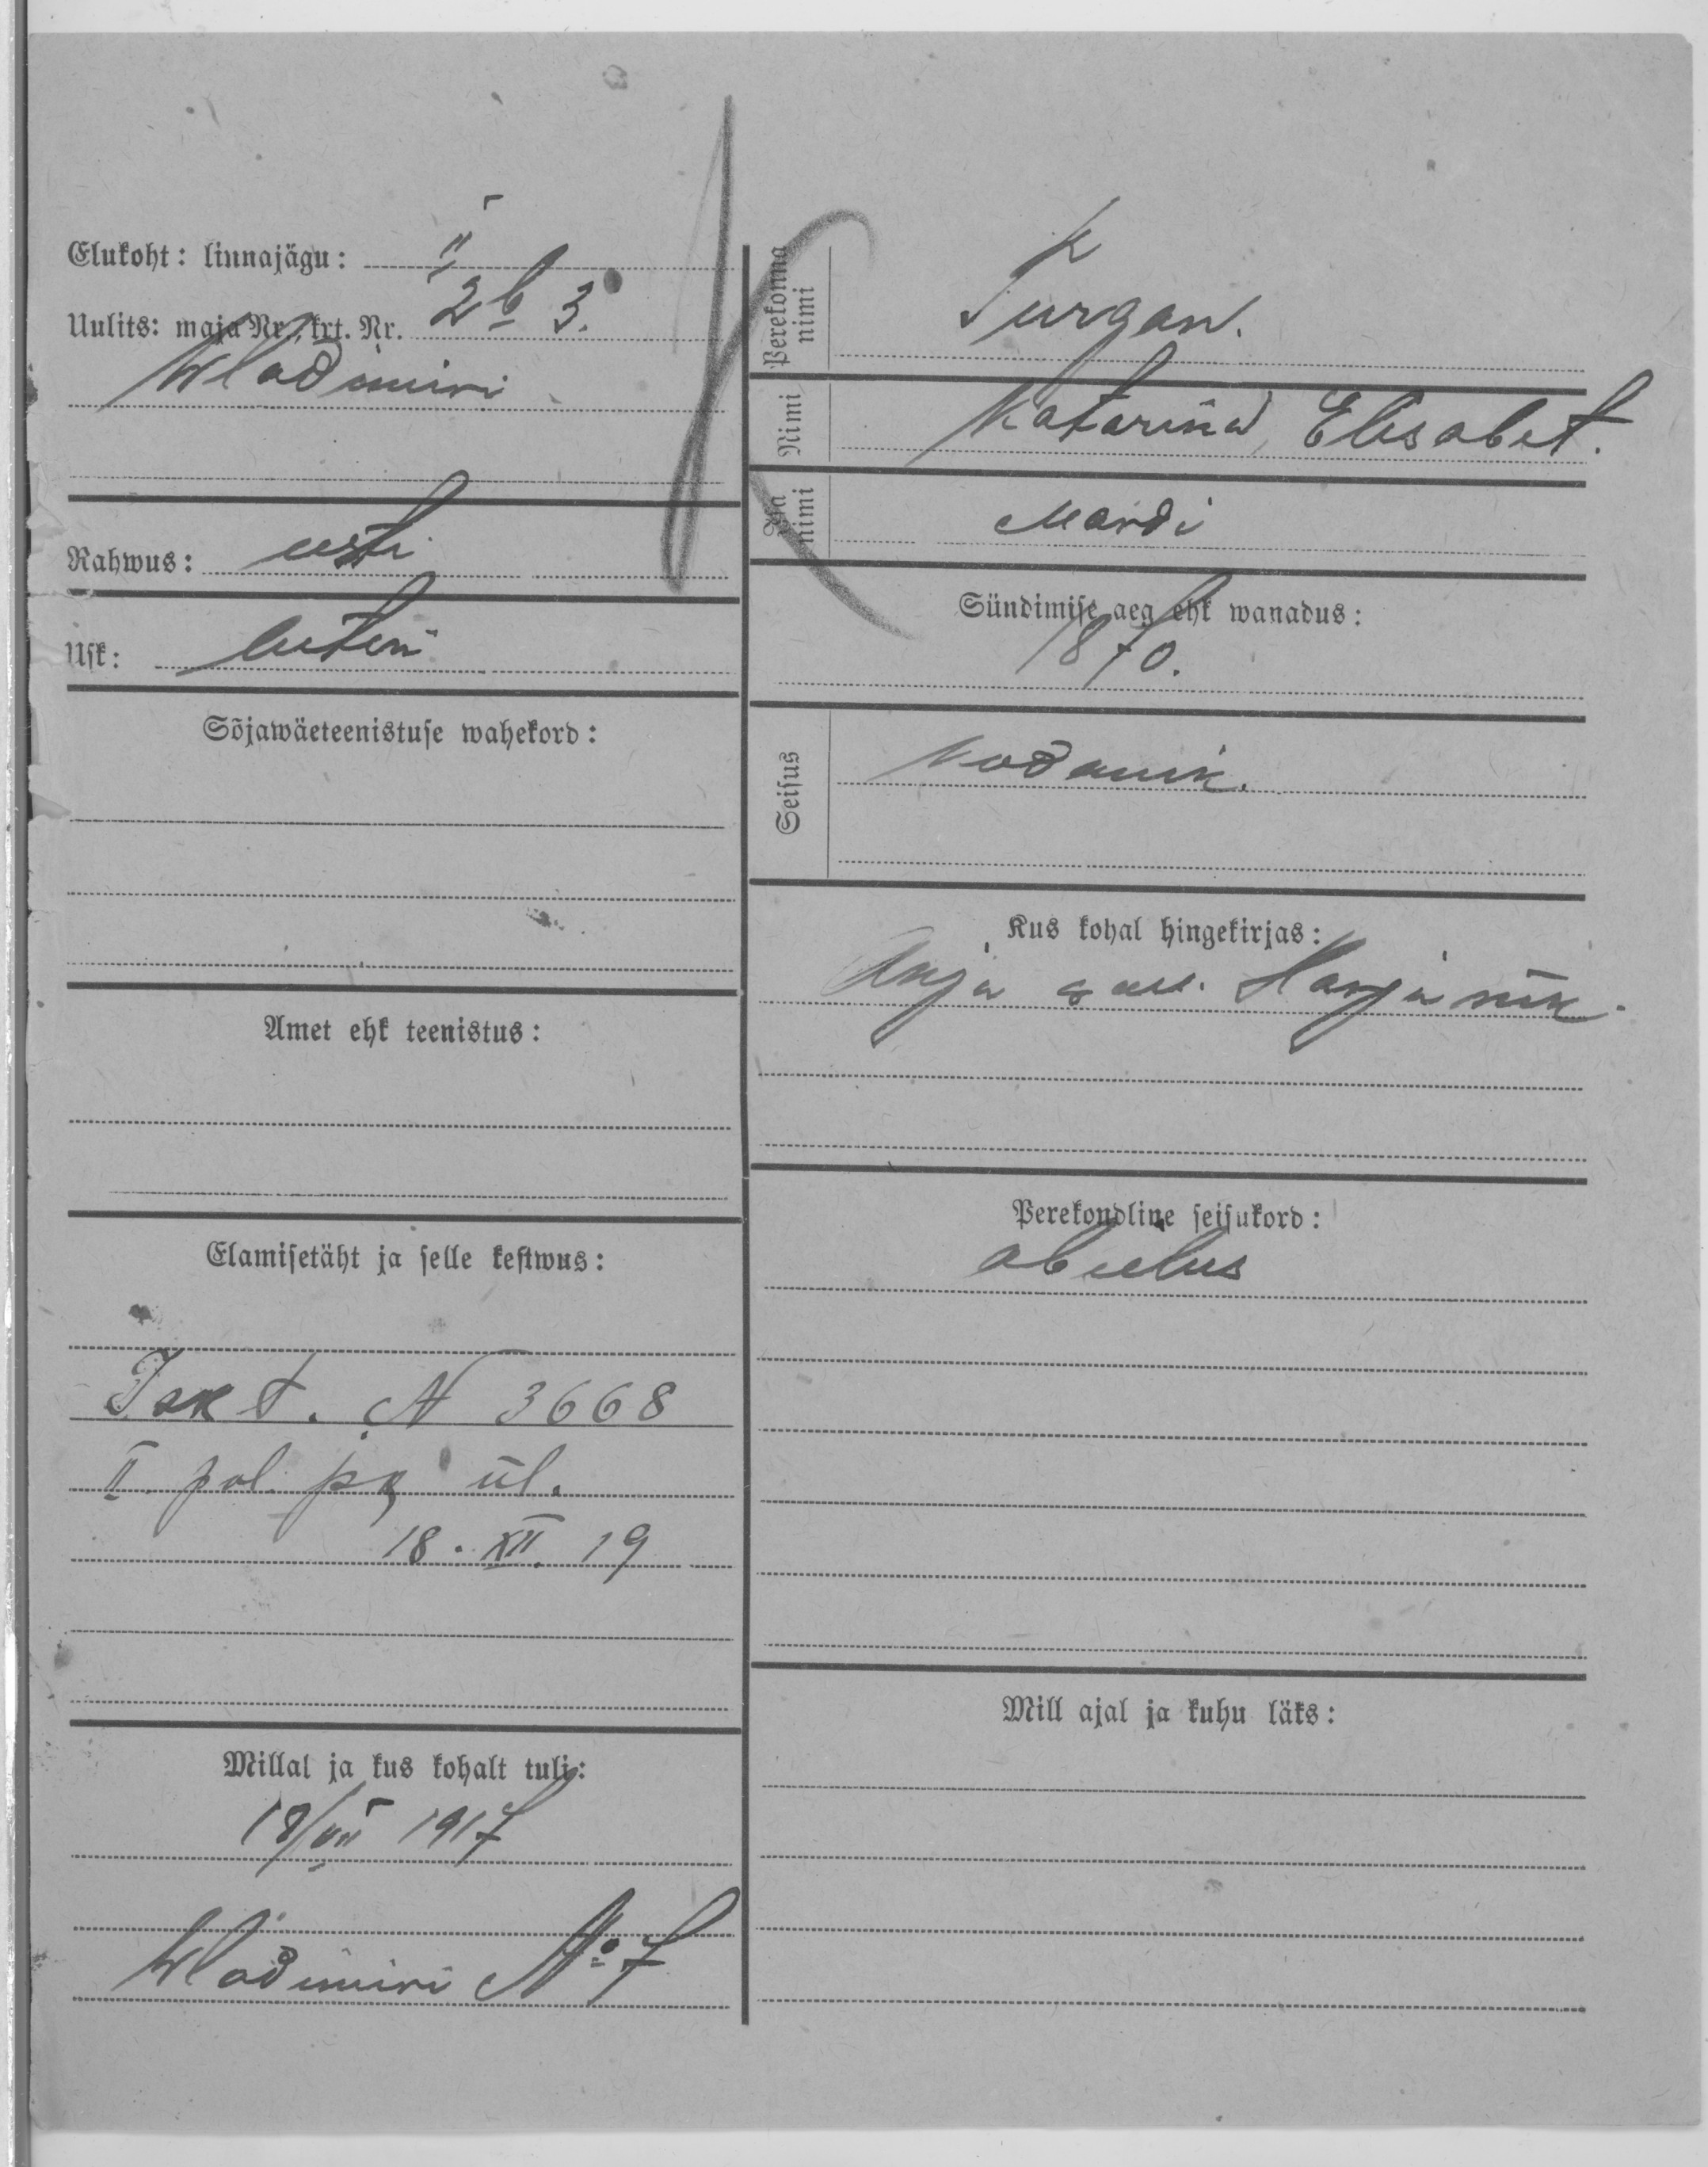 Elukoht: linnajägu: II
Uulits: maja Nr., krt. Nr. 2b 3.
Wladimiri
Rahwus: eesti
Usk: luteri
Sõjawäeteenistuse wahekord:
Amet ehk teenistus:
Elamisetäht ja selle kestwus:
Isikt. N 3668
II pol. pr ül.
18. XII. 19
Millal ja kus kohalt tuli:
18/VII 1917
Wladimiri No 7
K
Perekonna nimi Turgan.
Nimi Katarina Elisabet.
Isa nimi Mardi
Sündimise aeg ehk wanadus:
1870.
Seisus kodanik.
Kus kohal hingekirjas:
Anija wall. Harju mk.
Perekondline seisukord:
abielus
Mill ajal ja kuhu läks: